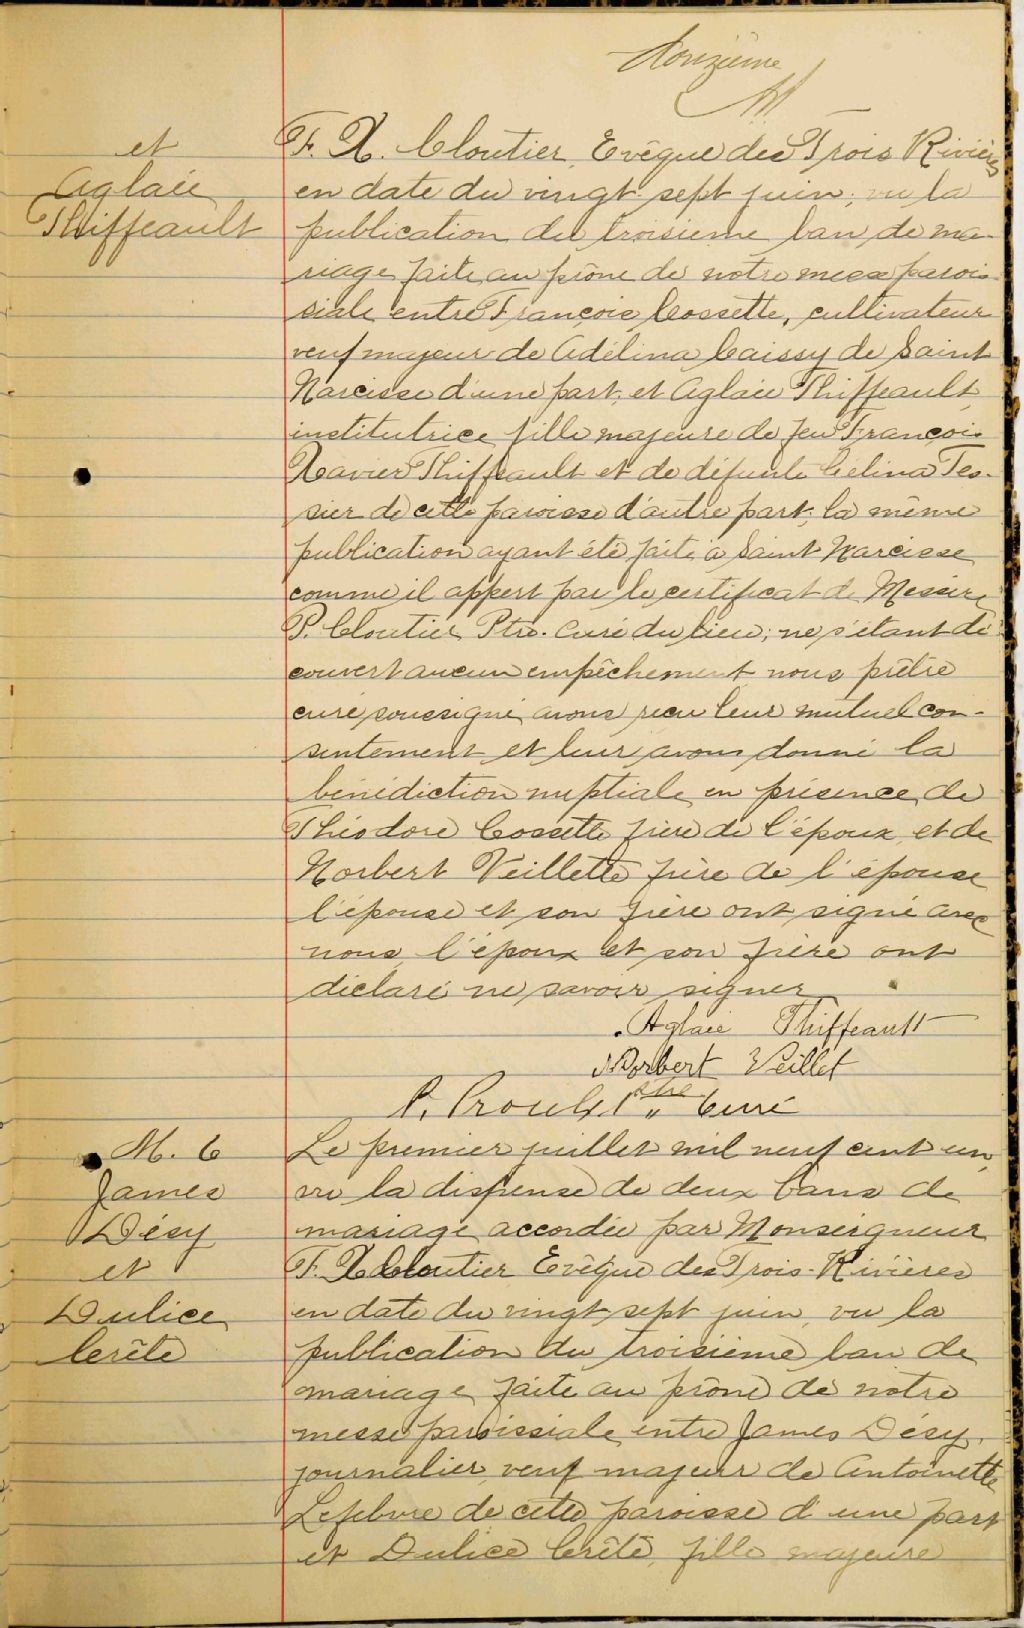 onzième
et
Aglaée
Thiffeault
F. X. Cloutier, Evêque des Trois Rivières
en date du vingt-sept juin, vu la
publication du troisième ban de ma-
riage faite au prône de notre messe parois-
siale entre François Cossette, cultivateur
veuf majeur de Adélina Caissy de Saint
Narcisse d'une part, et Aglaée Thiffeault,
institutrice fille majeure de feu François
Xavier Thiffeault et de défunte Célina Tes-
sier de cette paroisse d'autre part; la même
publication ayant été faite à Saint Narcisse
comme il appert par le certificat de Messire
P. Cloutier Ptre. Curé du lieu; ne s'étant dé
couvert aucun empêchement nous prêtre
curé soussigné avons reçu leur mutuel con-
sentement et leur avons donné la
bénédiction nuptiale en présence de
Théodore Cossette frère de l'époux, et de
Norbert Veillette frère de l'épouse
l'épouse et son frère ont signé avec
nous, l'époux et son frère ont
déclaré ne savoir signer
Aglaée Thiffeault
Norbert Veillet
P. Proulx Ptre Curé
M. 6
James
Désy
et
Dulice
Cerête
Le premier juillet mil neuf cent un,
vu la dispense de deux bans de
mariage accordée par Monseigneur
F. X. Cloutier Evêque des Trois-Rivières
en date du vingt sept juin, vu la
publication du troisième ban de
mariage faite au prône de notre
messe paroissiale entre James Désy,
journalier, veuf majeur de Antoinette
Lefebvre de cette paroisse d'une part
et Dulice Cerête, fille majeure